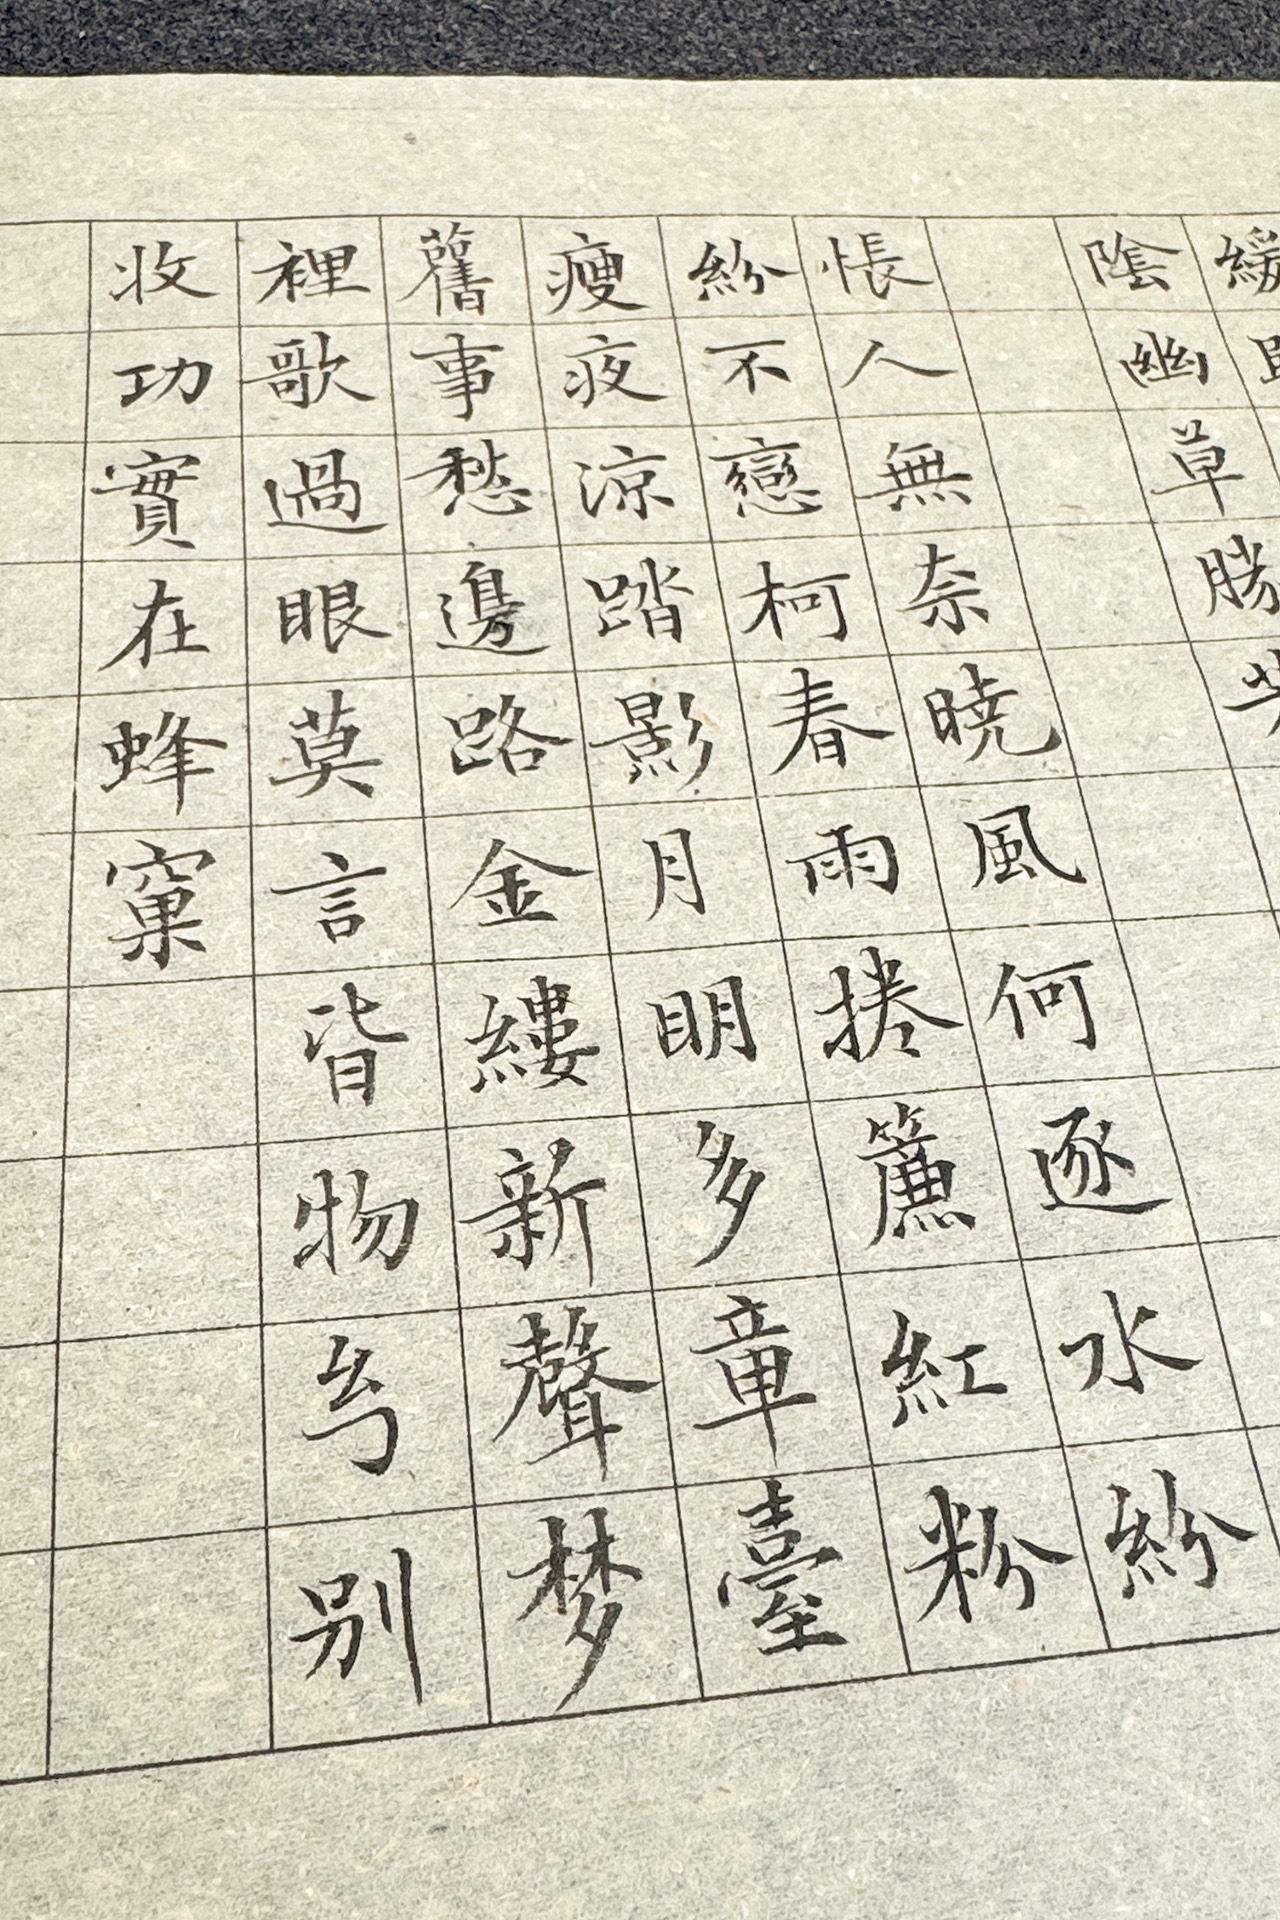 陰幽草勝
悵人無奈曉風何逐水紛
紛不戀柯春雨捲簾紅粉
瘦夜涼踏影月明多章臺
舊事愁邊路金縷新聲梦
裡歌過眼莫言皆物幻别
收功實在蜂窠